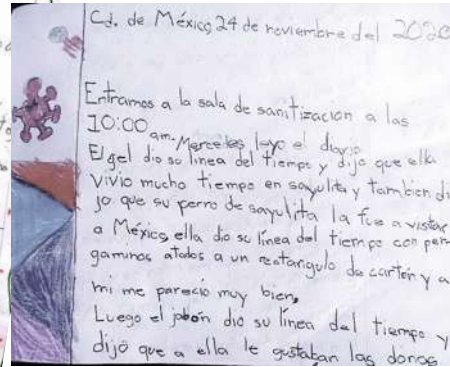 Cd. de México, 24 de noviembre del 2020
Entramos a la sala de sanitización a las
10:00 am. Mercedes leyo el diario
El gel dio su línea del tiempo y dijo que ella
vivio mucho tiempo en sayulita y tambien di
jo que su perro de sayulita la fue a visitar
a México, ella dio su línea del tiempo con per
gaminos atados a un rectangulo de cartón y a
mi me parecio muy bien,
Luego el jabón dio su línea del tiempo y
dijo que a ella le gustaban las donas